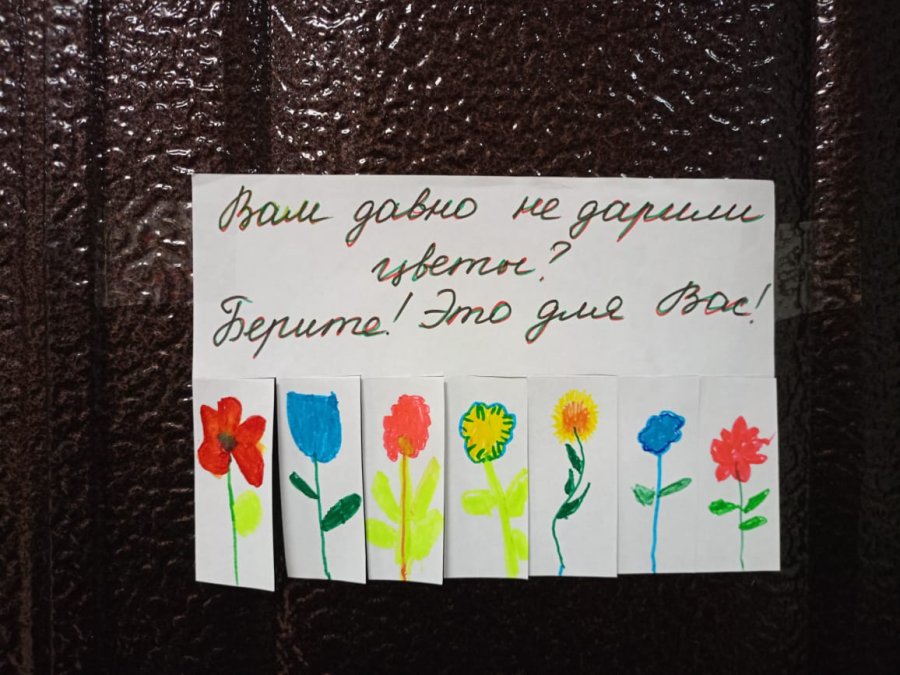 Вам давно не дарили
цветы?
Берите! Это для Вас!